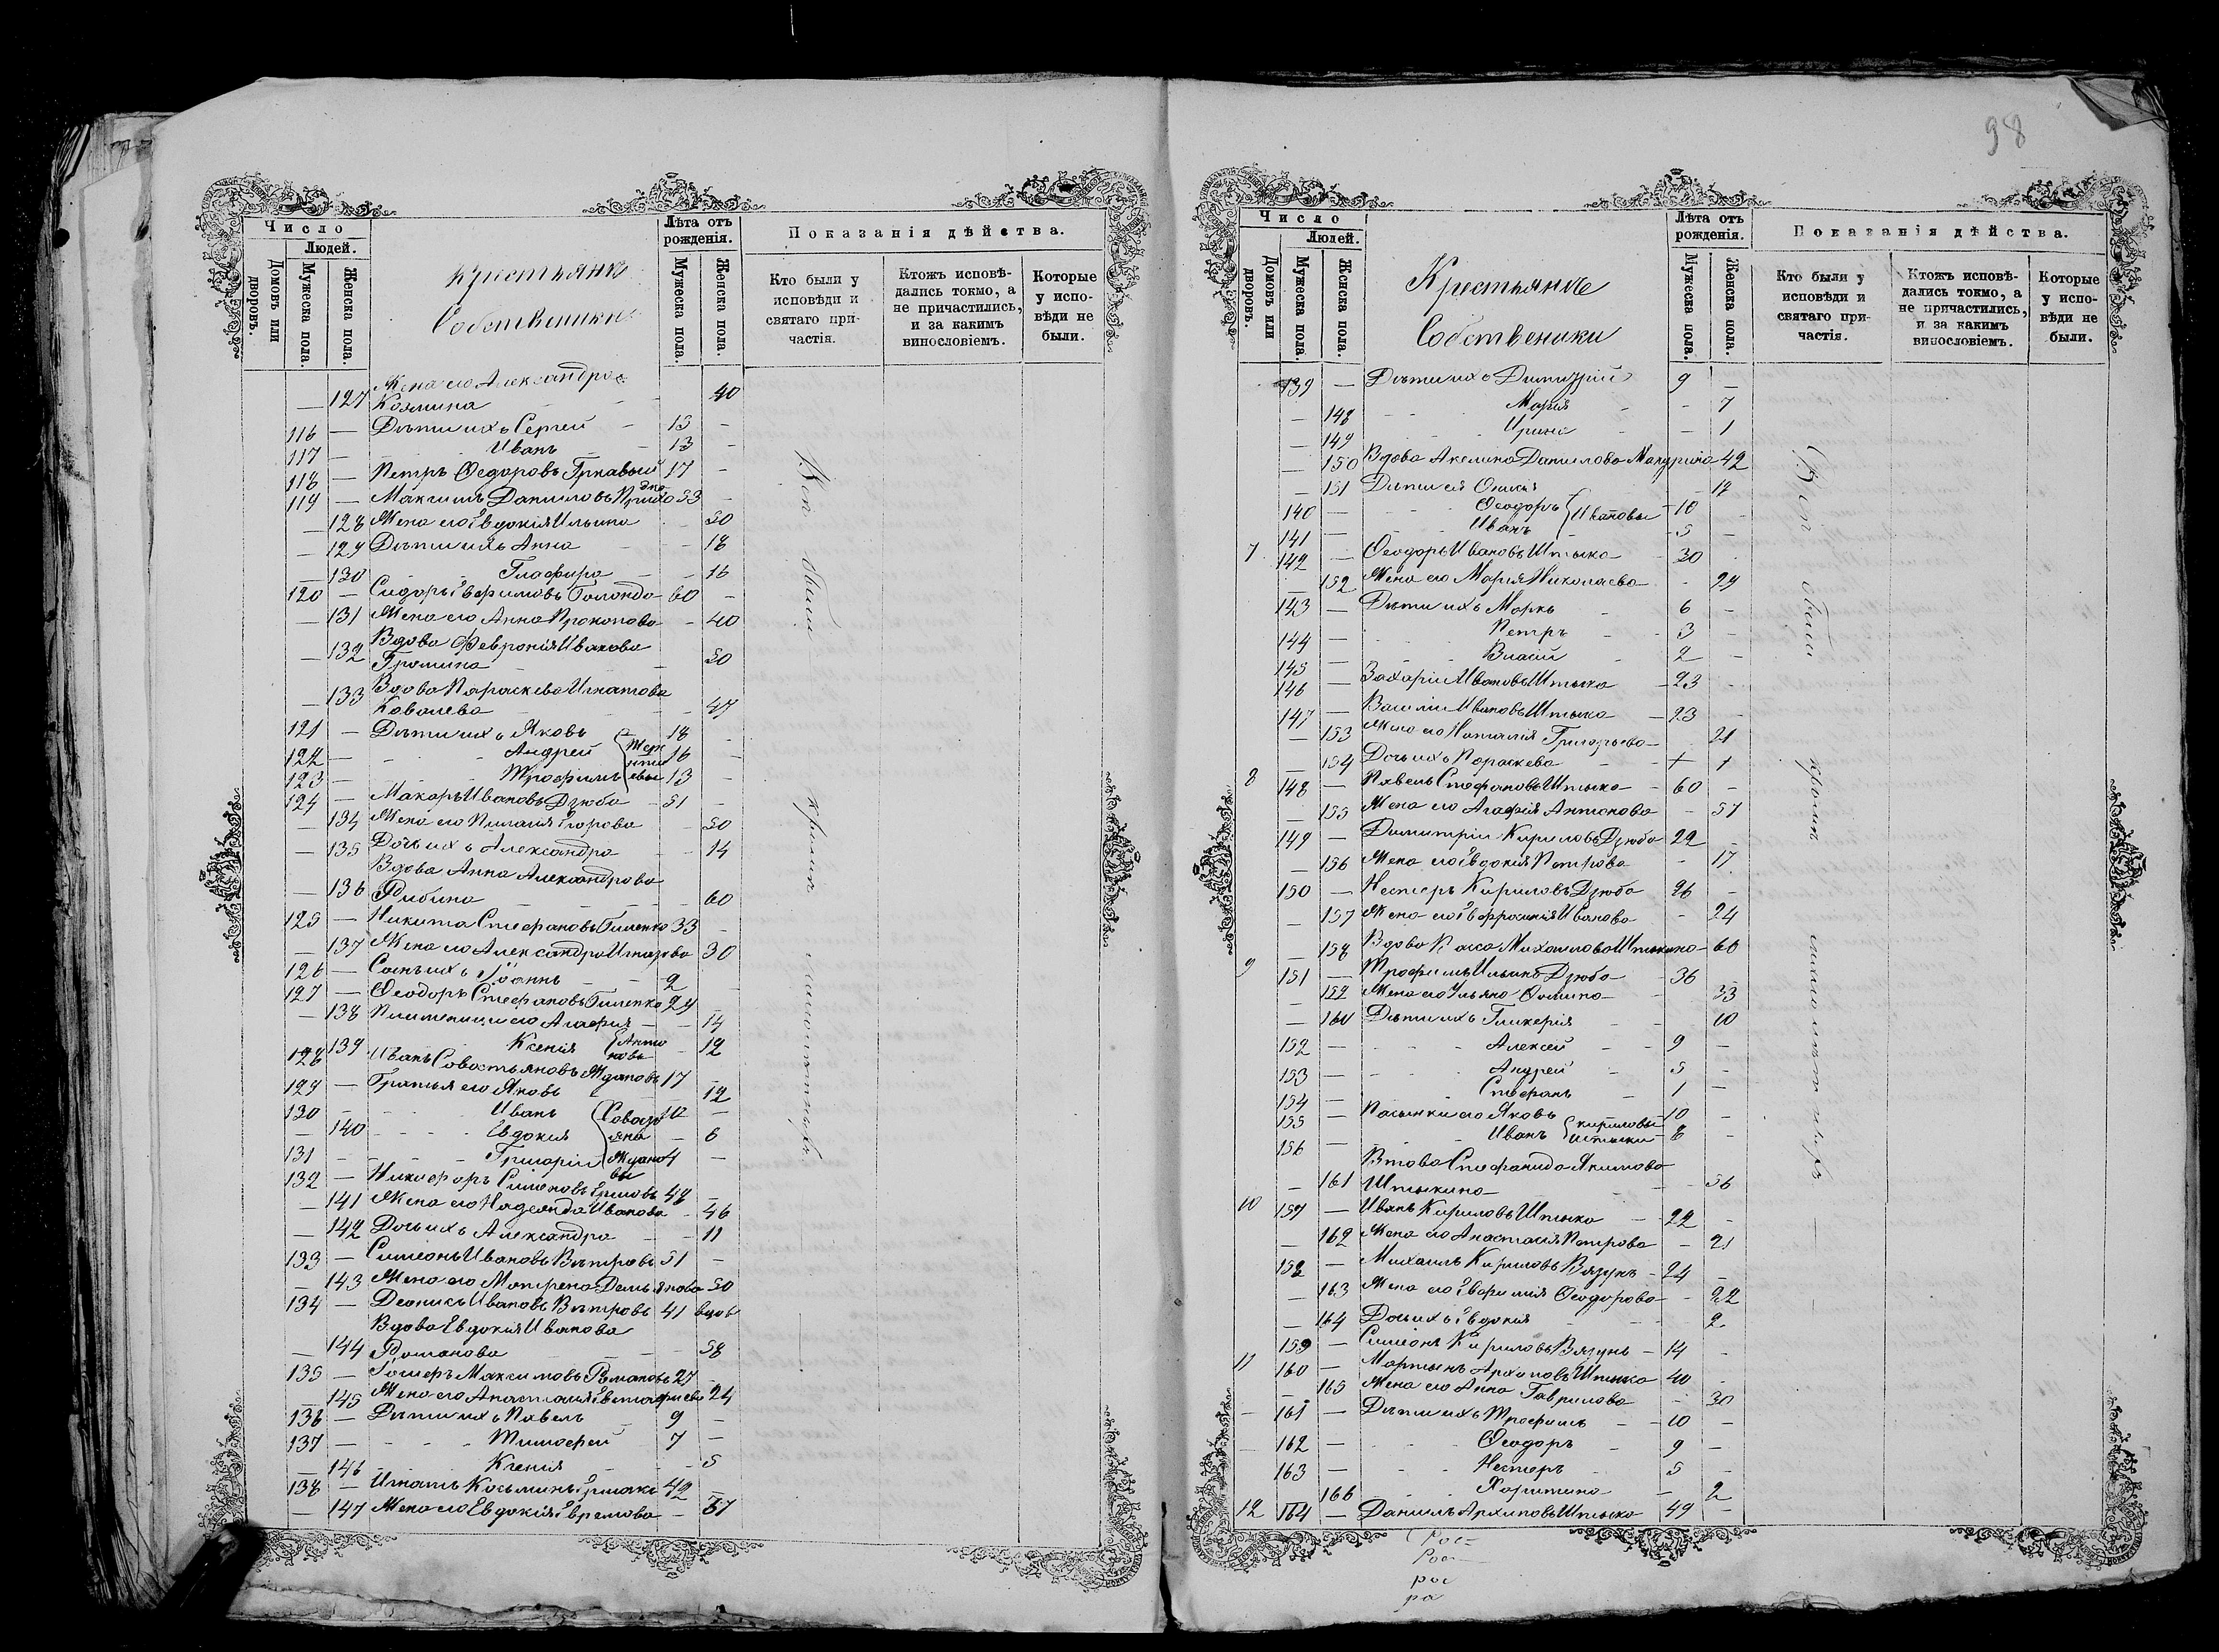 Число
Людей.
Домовъ или дворовъ.
Мужеска пола.
Женска пола.
Крестьяне
Собственники
Лѣта отъ рожденія.
Мужеска пола.
Женска пола.
Показанія дѣйства.
Кто были у исповѣди и святаго при-
частія.
Ктожъ исповѣ-
дались токмо, а
не причастились,
и за какимъ
винословіемъ.
Которые
у испо-
вѣди не
были.
— 127 Жена его Александра
Козмина — 40
116 — Дѣти ихъ Сергей 15 —
117 — Иванъ 13 —
118 — Петръ Ѳедоровъ 17 —
119 — Максимъ Даниловъ 53 —
— 128 Жена его Евдокія Ильина 50
— 129 Дѣти ихъ Анна — 18
— 130 Глафира — 16
120 — Сидоръ Евфимовъ 60 —
— 131 Жена его Анна Прокопова — 40
— 132 Вдова Февронія Иванова
50
— 133 Вдова Параскева Игнатова
Ковалева — 47
121 — Дѣти ихъ Яковъ 18 —
122 — Андрей 16 —
123 — Трофимъ 13 —
124 — Макаръ Ивановъ Дзюба 51 —
— 134 Жена его Пелагия Егорова — 50
— 135 Дочь ихъ Александра — 14
Вдова Анна Александрова
— 136 60
125 — Никита Стефановъ Гиленко 33 —
— 137 Жена его Александра 30
126 — Сынъ ихъ Іоаннъ 2
127 — Ѳеодоръ Стефановъ Гиленко 29 —
— 138 Племенницы его Агафия — 14
139 Ксенія — 12
128 Иванъ Савостьяновъ Ждановъ 17
129 — Братья его Яковъ 12
130 — Иванъ 10 —
— 140 Евдокия — 6
131 — Григорій 4 —
132 — Никифоръ Симеоновъ 48 —
— 141 Жена его Надежда Иванова — 46
— 142 Дочь ихъ Александра — 11
133 — Симеонъ Ивановъ Вѣтровъ 51 —
— 143 Жена его Матрена Демьянова 50
134 — Ивановъ Вѣтровъ 41 вдов
Вдова Евдокия Иванова
— 144 Романова — 58
135 — Максимовъ Романовъ
— 145 Жена его Анастасия 24
136 — Дѣти ихъ Павелъ 9 —
137 — Тимофей 7 —
— 146 Ксенія — 5
138 — Игнатъ Косьминъ Ермакъ 42
— 147 Жена его Евдокія Ефремова —
Всѣ были кромѣ малолѣтнихъ
98
Число
Людей.
Домовъ или дворовъ.
Мужеска пола.
Женска пола.
Крестьяне
Собственики
Лѣта отъ рожденія.
Мужеска пола.
Женска пола.
Показанія дѣйства.
Кто были у исповѣди и святаго при-
частія.
Ктожъ исповѣ-
дались токмо, а
не причастились,
и за какимъ
винословіемъ.
Которые
у испо-
вѣди не
были.
139 — Дѣти ихъ Димитрій 9 —
— 148 Мария — 7
— 149 Ирина — 1
— 150 Вдова Акелина Данилова 42
— 151 Дѣти ея
140 — Ѳеодоръ Ивановы 10
141 — Иванъ 5 —
7 142 — Ѳеодоръ Ивановъ Штыка 30
— 152 Жена его Мария Николаева 29
143 — Дѣти ихъ Марко 6 —
144 — Петръ 3 —
145 — Власій 2 —
146 — Захарій Ивановъ Штыка 23
147 — Василій Ивановъ Штыка 23
— 153 Жена его Наталия Григорьева 21
— 154 Дочь ихъ Параскева
8 148 — Павелъ Стефановъ Штыка 60 —
— 155 Жена его Агафія Антонова — 57
149 — Димитрій Кириловъ Дзюба 22 —
— 156 Жена его Евдокія Петрова — 17
150 — Нестеръ Кириловъ Дзюба 26 —
— 157 Жена его Евфросинія Иванова — 24
— 158 Вдова Михайлова Штыкина 60
9 151 — Трофимъ Ильинъ Дзюба 36
— Жена его Ульяна Ѳомина — 33
— 160 Дѣти ихъ Гликерія — 10
152 — Алексей 9 —
153 — Андрей 5 —
154 — Стефанъ 1 —
155 — Пасынки его Яковъ 10 —
156 — Иванъ Кириловы Штыки 8 —
Вдова Стефанида Якимова
— 161 Штыкина — 56
10 157 — Иванъ Кириловъ Штыка 22 —
— 162 Жена его Анастасия Петрова — 21
158 — Михаилъ Кириловъ Вязунъ 24 —
— 163 Жена его Евфимия Ѳеодорова — 22
— 164 Дочь ихъ Евдокия 2
159 — Симеонъ Кириловъ Вязунъ 14 —
11 160 — Мартынъ Архиповъ Штыка 40 —
— 165 Жена его Анна Гаврилова — 30
161 — Дѣти ихъ Трофимъ 10 —
162 — Ѳеодоръ 9 —
163 — Нестеръ 5 —
166 Харитина — 2
12 164 — Данилъ Архиповъ Штыка 49 —
Всѣ были кромѣ малолѣтнихъ
Рос-
Рос-
рос
ро